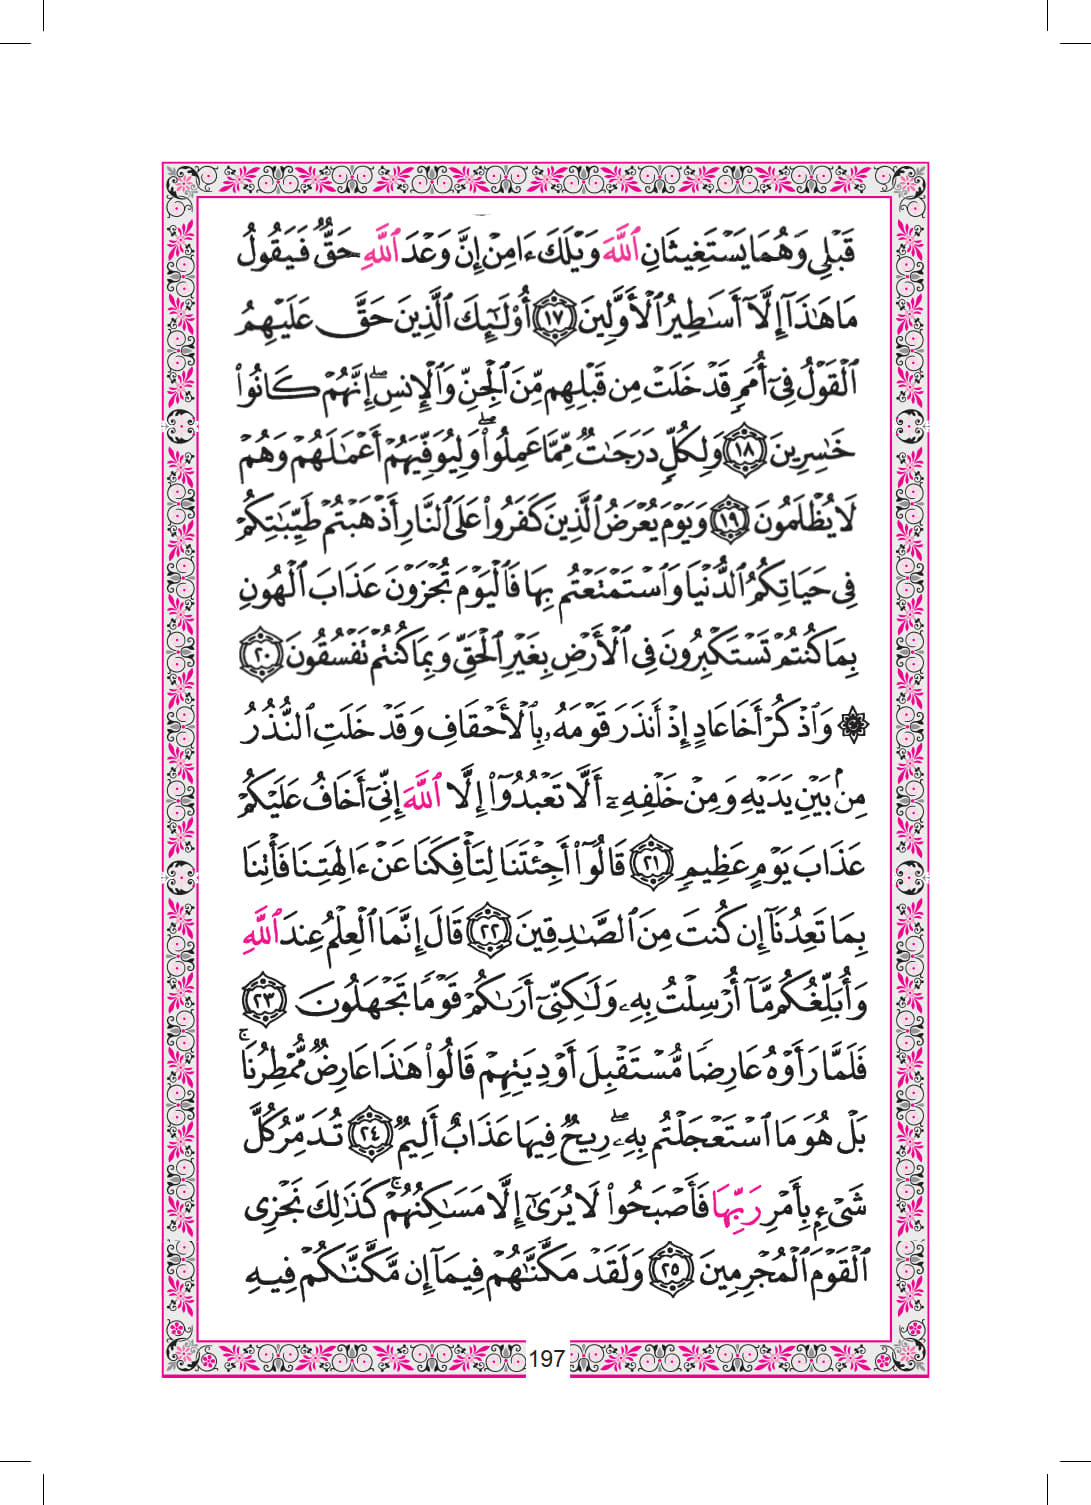 قَبْلِى وَهُمَا يَسْتَغِيثَانِ ٱللَّهَ وَيْلَكَ ءَامِنْ إِنَّ وَعْدَ ٱللَّهِ حَقٌّ فَيَقُولُ
مَا هَٰذَآ إِلَّآ أَسَٰطِيرُ ٱلْأَوَّلِينَ ١٧ أُو۟لَٰٓئِكَ ٱلَّذِينَ حَقَّ عَلَيْهِمُ
ٱلْقَوْلُ فِىٓ أُمَمٍ قَدْ خَلَتْ مِن قَبْلِهِم مِّنَ ٱلْجِنِّ وَٱلْإِنسِ ۖ إِنَّهُمْ كَانُوا۟
خَٰسِرِينَ ١٨ وَلِكُلٍّ دَرَجَٰتٌ مِّمَّا عَمِلُوا۟ ۖ وَلِيُوَفِّيَهُمْ أَعْمَٰلَهُمْ وَهُمْ
لَا يُظْلَمُونَ ١٩ وَيَوْمَ يُعْرَضُ ٱلَّذِينَ كَفَرُوا۟ عَلَى ٱلنَّارِ أَذْهَبْتُمْ طَيِّبَٰتِكُمْ
فِى حَيَاتِكُمُ ٱلدُّنْيَا وَٱسْتَمْتَعْتُم بِهَا فَٱلْيَوْمَ تُجْزَوْنَ عَذَابَ ٱلْهُونِ
بِمَا كُنتُمْ تَسْتَكْبِرُونَ فِى ٱلْأَرْضِ بِغَيْرِ ٱلْحَقِّ وَبِمَا كُنتُمْ تَفْسُقُونَ ٢٠
۞ وَٱذْكُرْ أَخَا عَادٍ إِذْ أَنذَرَ قَوْمَهُۥ بِٱلْأَحْقَافِ وَقَدْ خَلَتِ ٱلنُّذُرُ
مِنۢ بَيْنِ يَدَيْهِ وَمِنْ خَلْفِهِۦٓ أَلَّا تَعْبُدُوٓا۟ إِلَّا ٱللَّهَ إِنِّىٓ أَخَافُ عَلَيْكُمْ
عَذَابَ يَوْمٍ عَظِيمٍ ٢١ قَالُوٓا۟ أَجِئْتَنَا لِتَأْفِكَنَا عَنْ ءَالِهَتِنَا فَأْتِنَا
بِمَا تَعِدُنَآ إِن كُنتَ مِنَ ٱلصَّٰدِقِينَ ٢٢ قَالَ إِنَّمَا ٱلْعِلْمُ عِندَ ٱللَّهِ
وَأُبَلِّغُكُم مَّآ أُرْسِلْتُ بِهِۦ وَلَٰكِنِّىٓ أَرَىٰكُمْ قَوْمًا تَجْهَلُونَ ٢٣
فَلَمَّا رَأَوْهُ عَارِضًا مُّسْتَقْبِلَ أَوْدِيَتِهِمْ قَالُوا۟ هَٰذَا عَارِضٌ مُّمْطِرُنَا ۚ
بَلْ هُوَ مَا ٱسْتَعْجَلْتُم بِهِۦ ۖ رِيحٌ فِيهَا عَذَابٌ أَلِيمٌ ٢٤ تُدَمِّرُ كُلَّ
شَىْءٍۭ بِأَمْرِ رَبِّهَا فَأَصْبَحُوا۟ لَا يُرَىٰٓ إِلَّا مَسَٰكِنُهُمْ ۚ كَذَٰلِكَ نَجْزِى
ٱلْقَوْمَ ٱلْمُجْرِمِينَ ٢٥ وَلَقَدْ مَكَّنَّٰهُمْ فِيمَآ إِن مَّكَّنَّٰكُمْ فِيهِ
197